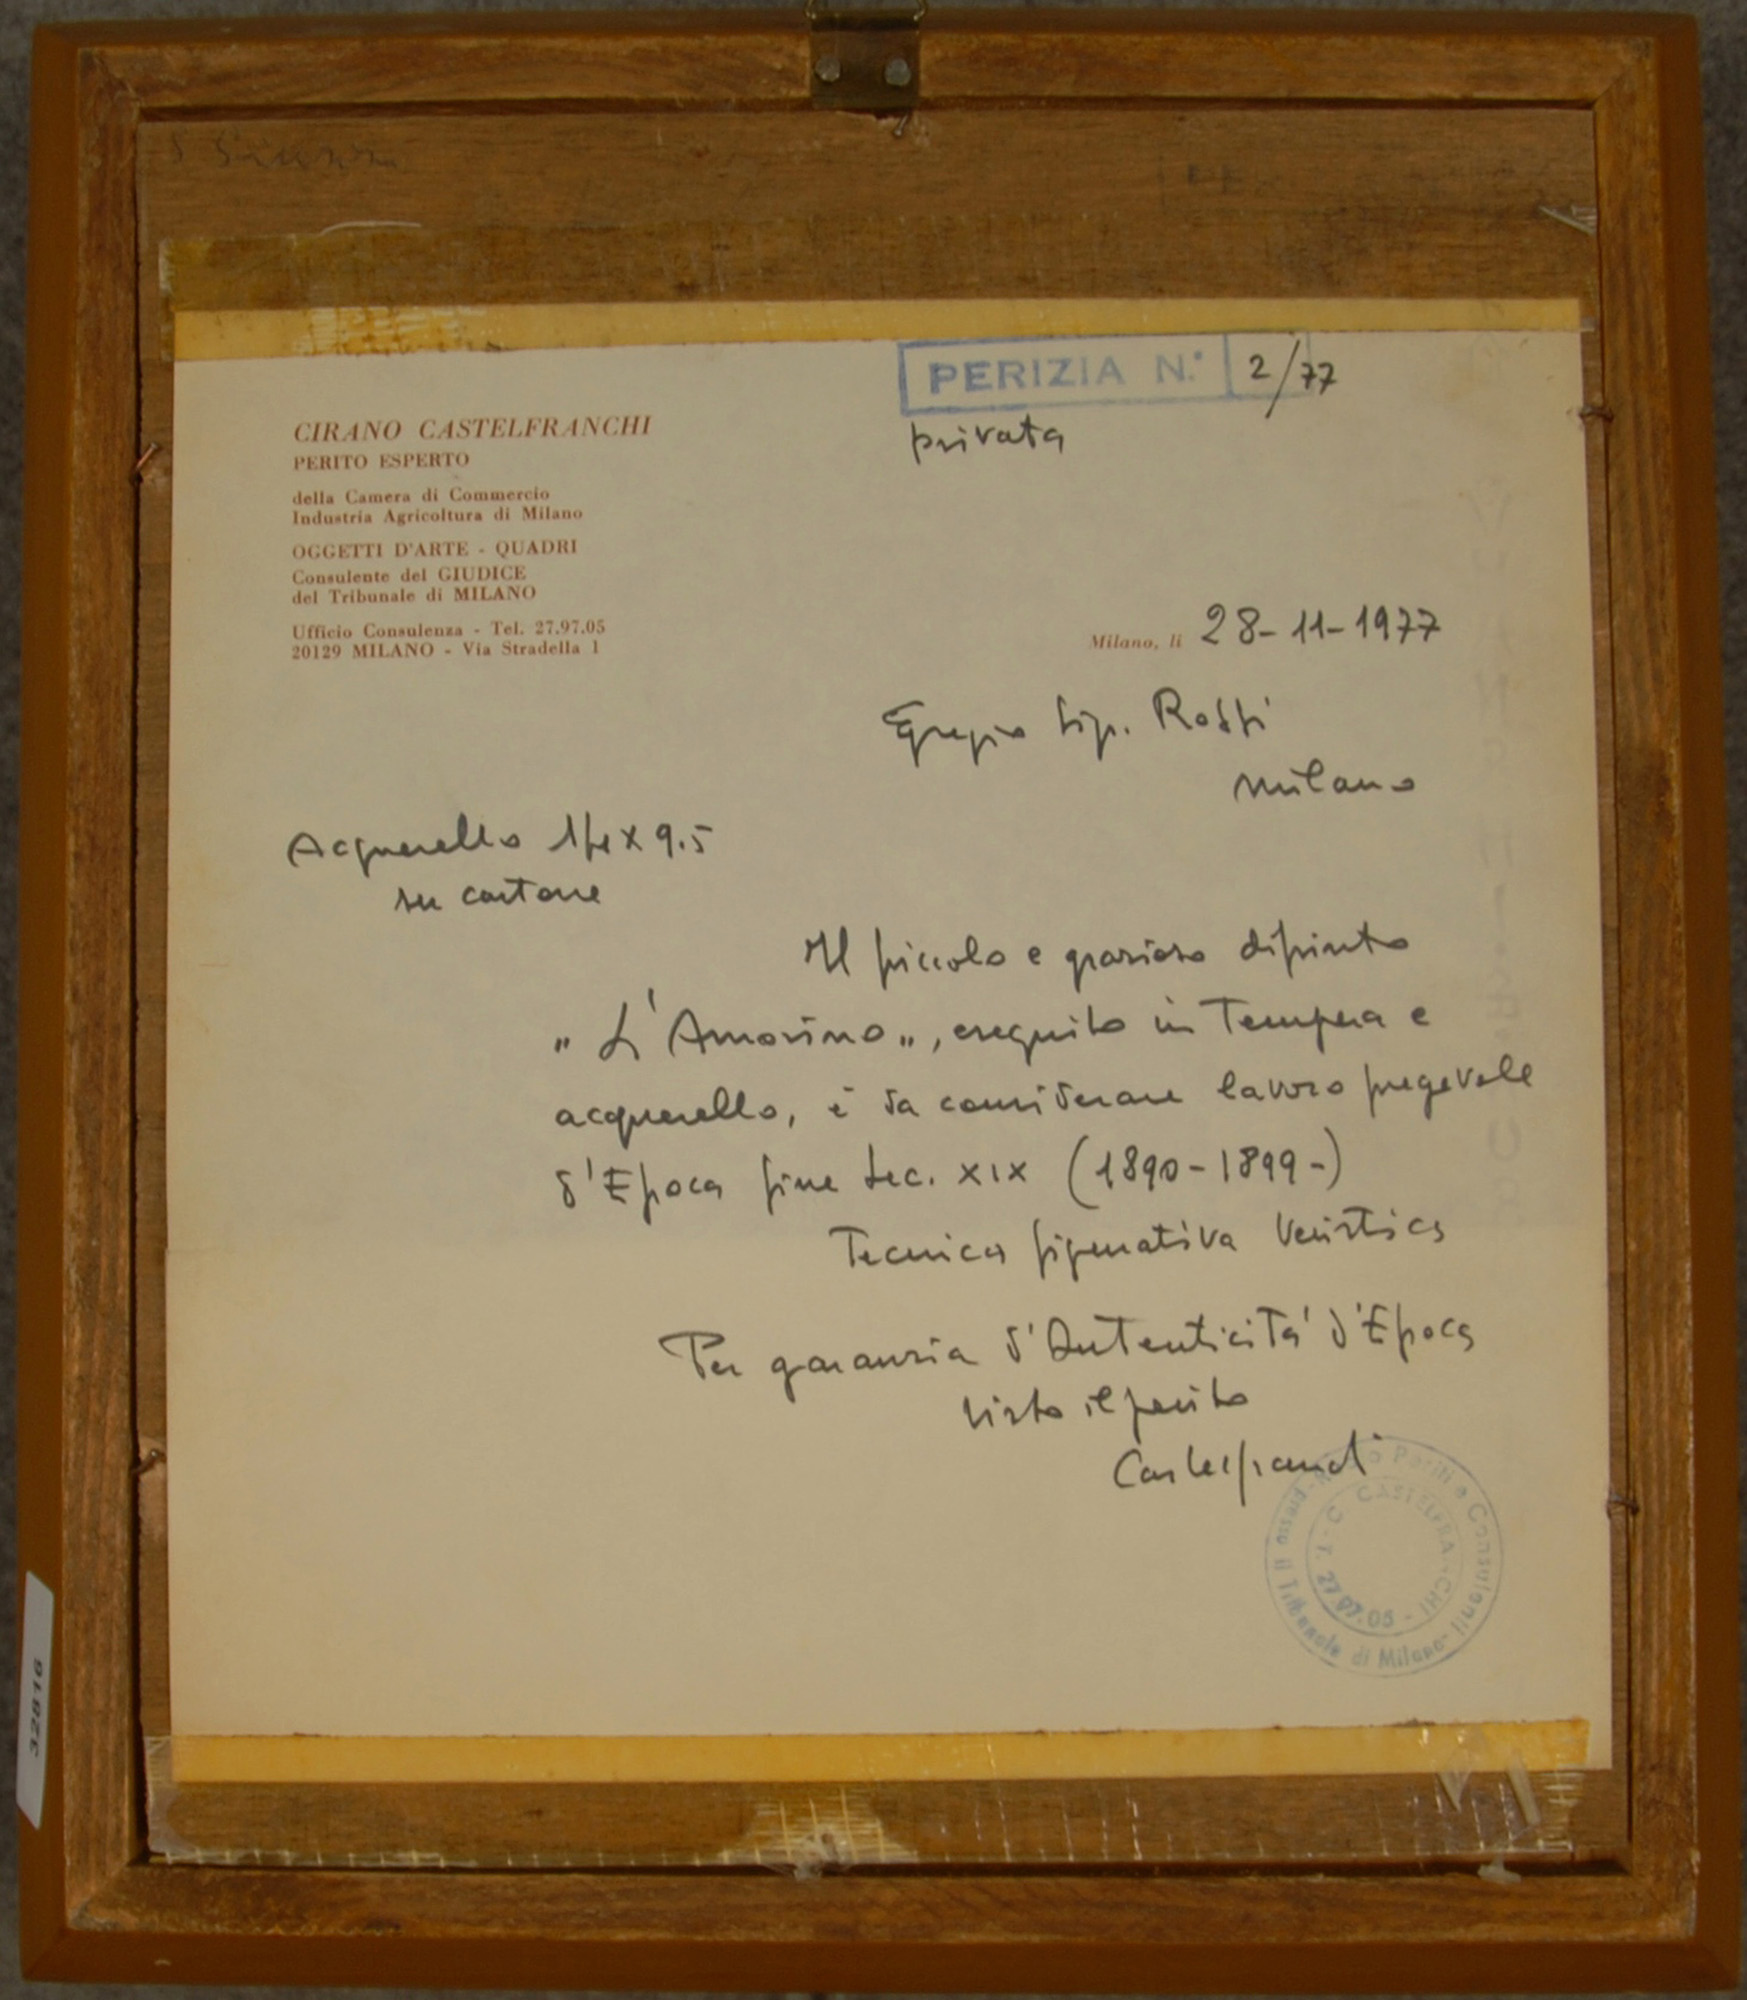 PERIZIA N.° 2/77
privata
CIRANO CASTELFRANCHI
PERITO ESPERTO
della Camera di Commercio
Industria Agricoltura di Milano
OGGETTI D'ARTE - QUADRI
Consulente del GIUDICE
del Tribunale di MILANO
Ufficio Consulenza - Tel. 27.97.05
20129 MILANO - Via Stradella 1
Milano, li 28-11-1977
Egregio Sig. Rossi
Milano
Acquerello 14x9.5
su cartone
Il piccolo e grazioso dipinto
"L'Amorino", eseguito in Tempera e
acquerello, è da considerare lavoro pregevole
d'Epoca fine sec. XIX (1890-1899-)
Tecnica figurativa Veristica
Per garanzia d'Autenticità d'Epoca
visto il perito
Castelfranchi
Periti e Consulenti
il Tribunale di Milano
C. CASTELFRANCHI - T. 27.97.05
32816